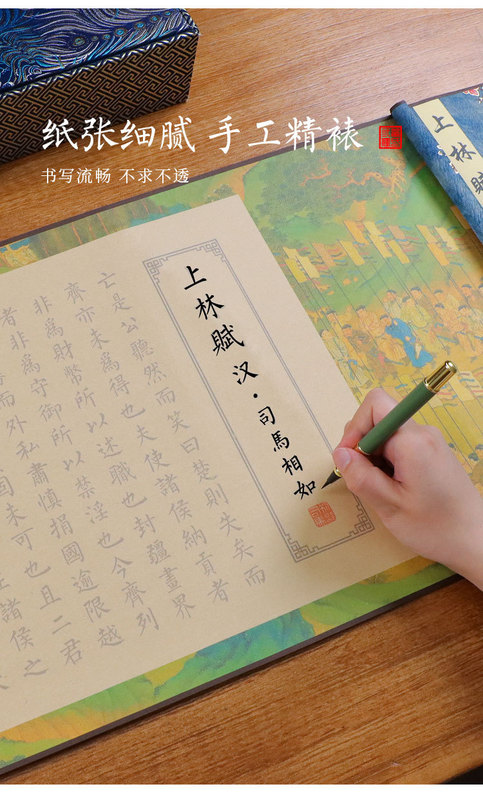 纸张细腻 手工精裱
书写流畅 不求不透
上林賦
上林賦 汉·司馬相如
亡是公聽然而笑曰楚則失矣而
齊亦未為得也夫使諸侯納貢者
非為財幣所以述職也封疆畫界
者非為守御所以禁淫也今齊列
而外私肅慎捐國逾限越
未可也且二君
諸侯之